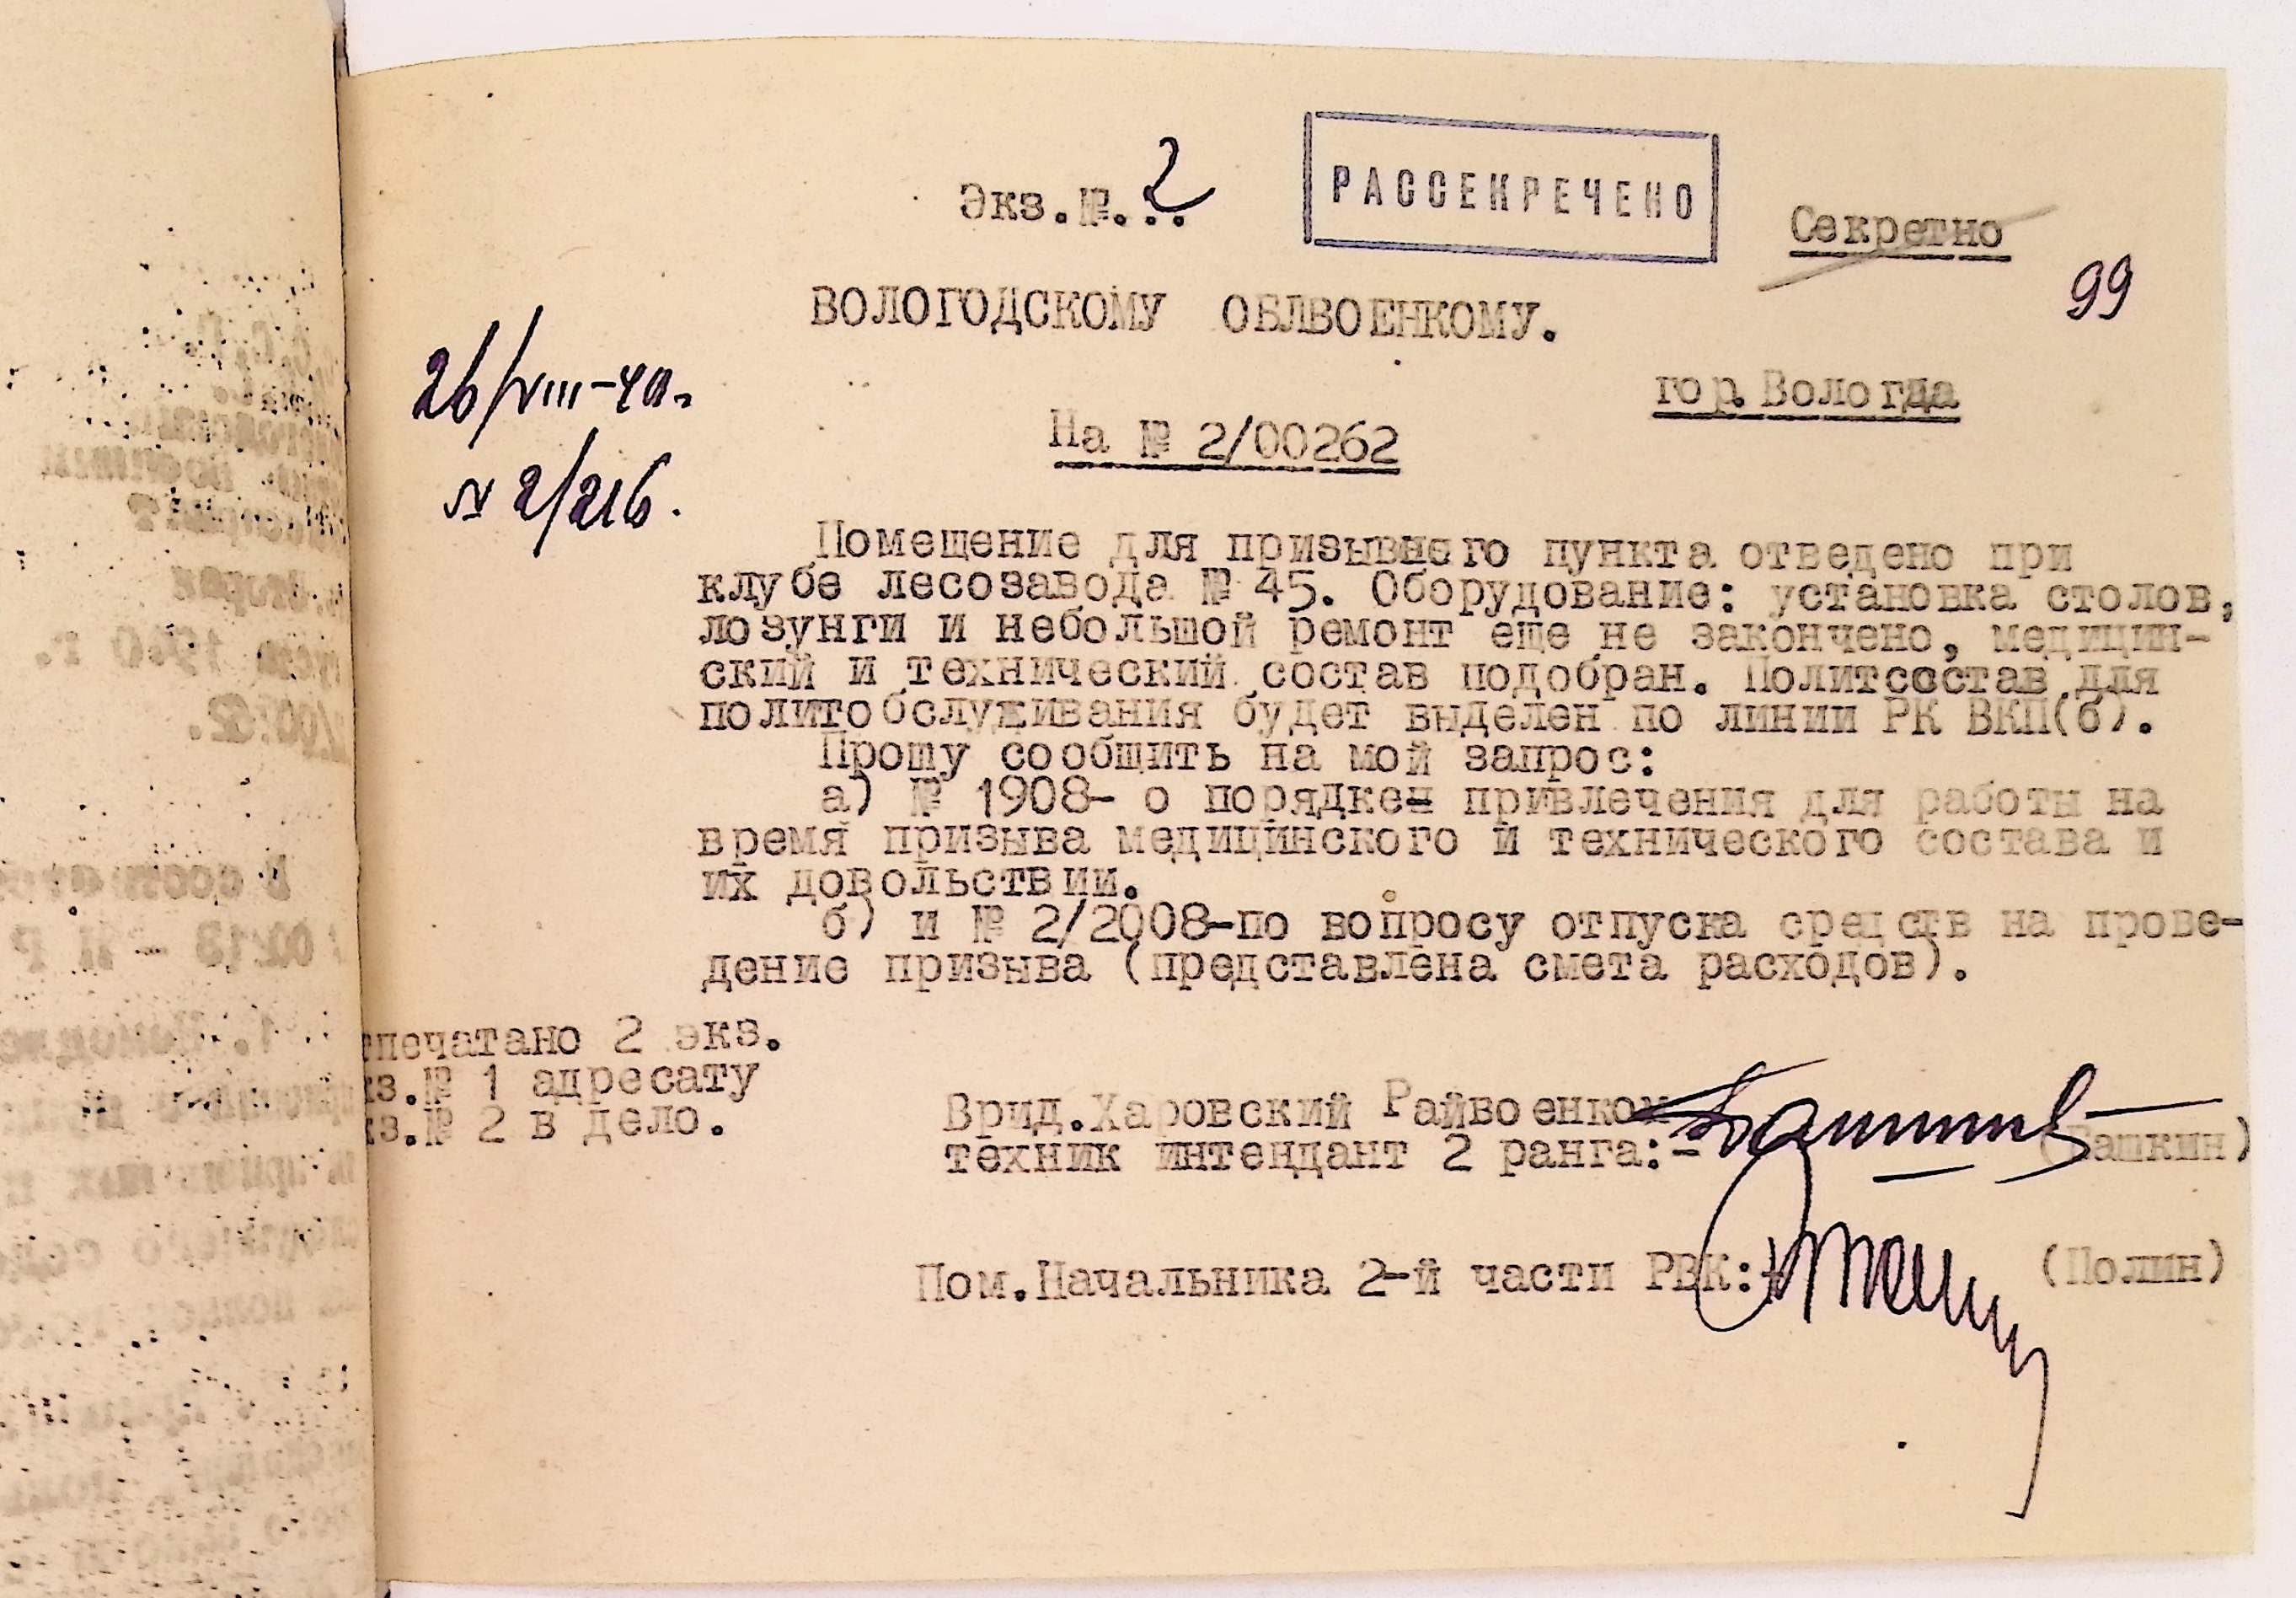 Экз.№... 2
РАССЕКРЕЧЕНО
Секретно
99
ВОЛОГОДСКОМУ ОБЛВОЕНКОМУ.
26/VIII-40.
гор. Вологда
На № 2/00262
N 2/216.
Помещение для призывного пункта отведено при
клубе лесозавода № 45. Оборудование: установка столов,
лозунги и небольшой ремонт еще не закончено, медицин-
ский и технический состав подобран. Политсостав для
политобслуживания будет выделен по линии РК ВКП(б).
Прошу сообщить на мой запрос:
а) № 1908- о порядке привлечения для работы на
время призыва медицинского и технического состава и
их довольствии.
б) и № 2/2008-по вопросу отпуска средств на прове-
дение призыва (представлена смета расходов).
печатано 2 экз.
кз.№ 1 адресату
кз.№ 2 в дело.
Врид.Харовский Райвоенком
техник интендант 2 ранга:- (Башкин)
Пом.Начальника 2-й части РВК: (Полин)
1940 г.